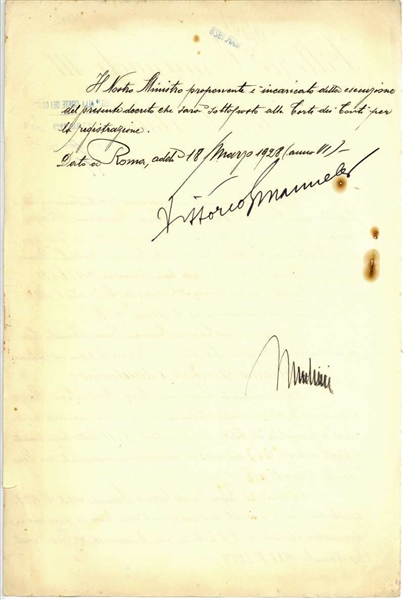 Il Nostro Ministro proponente è incaricato della esecuzione
del presente decreto che sarà sottoposto alla Corte dei Conti per
la registrazione.
Dato a Roma, addì 18 Marzo 1928 (anno VI)
Vittorio Emanuele